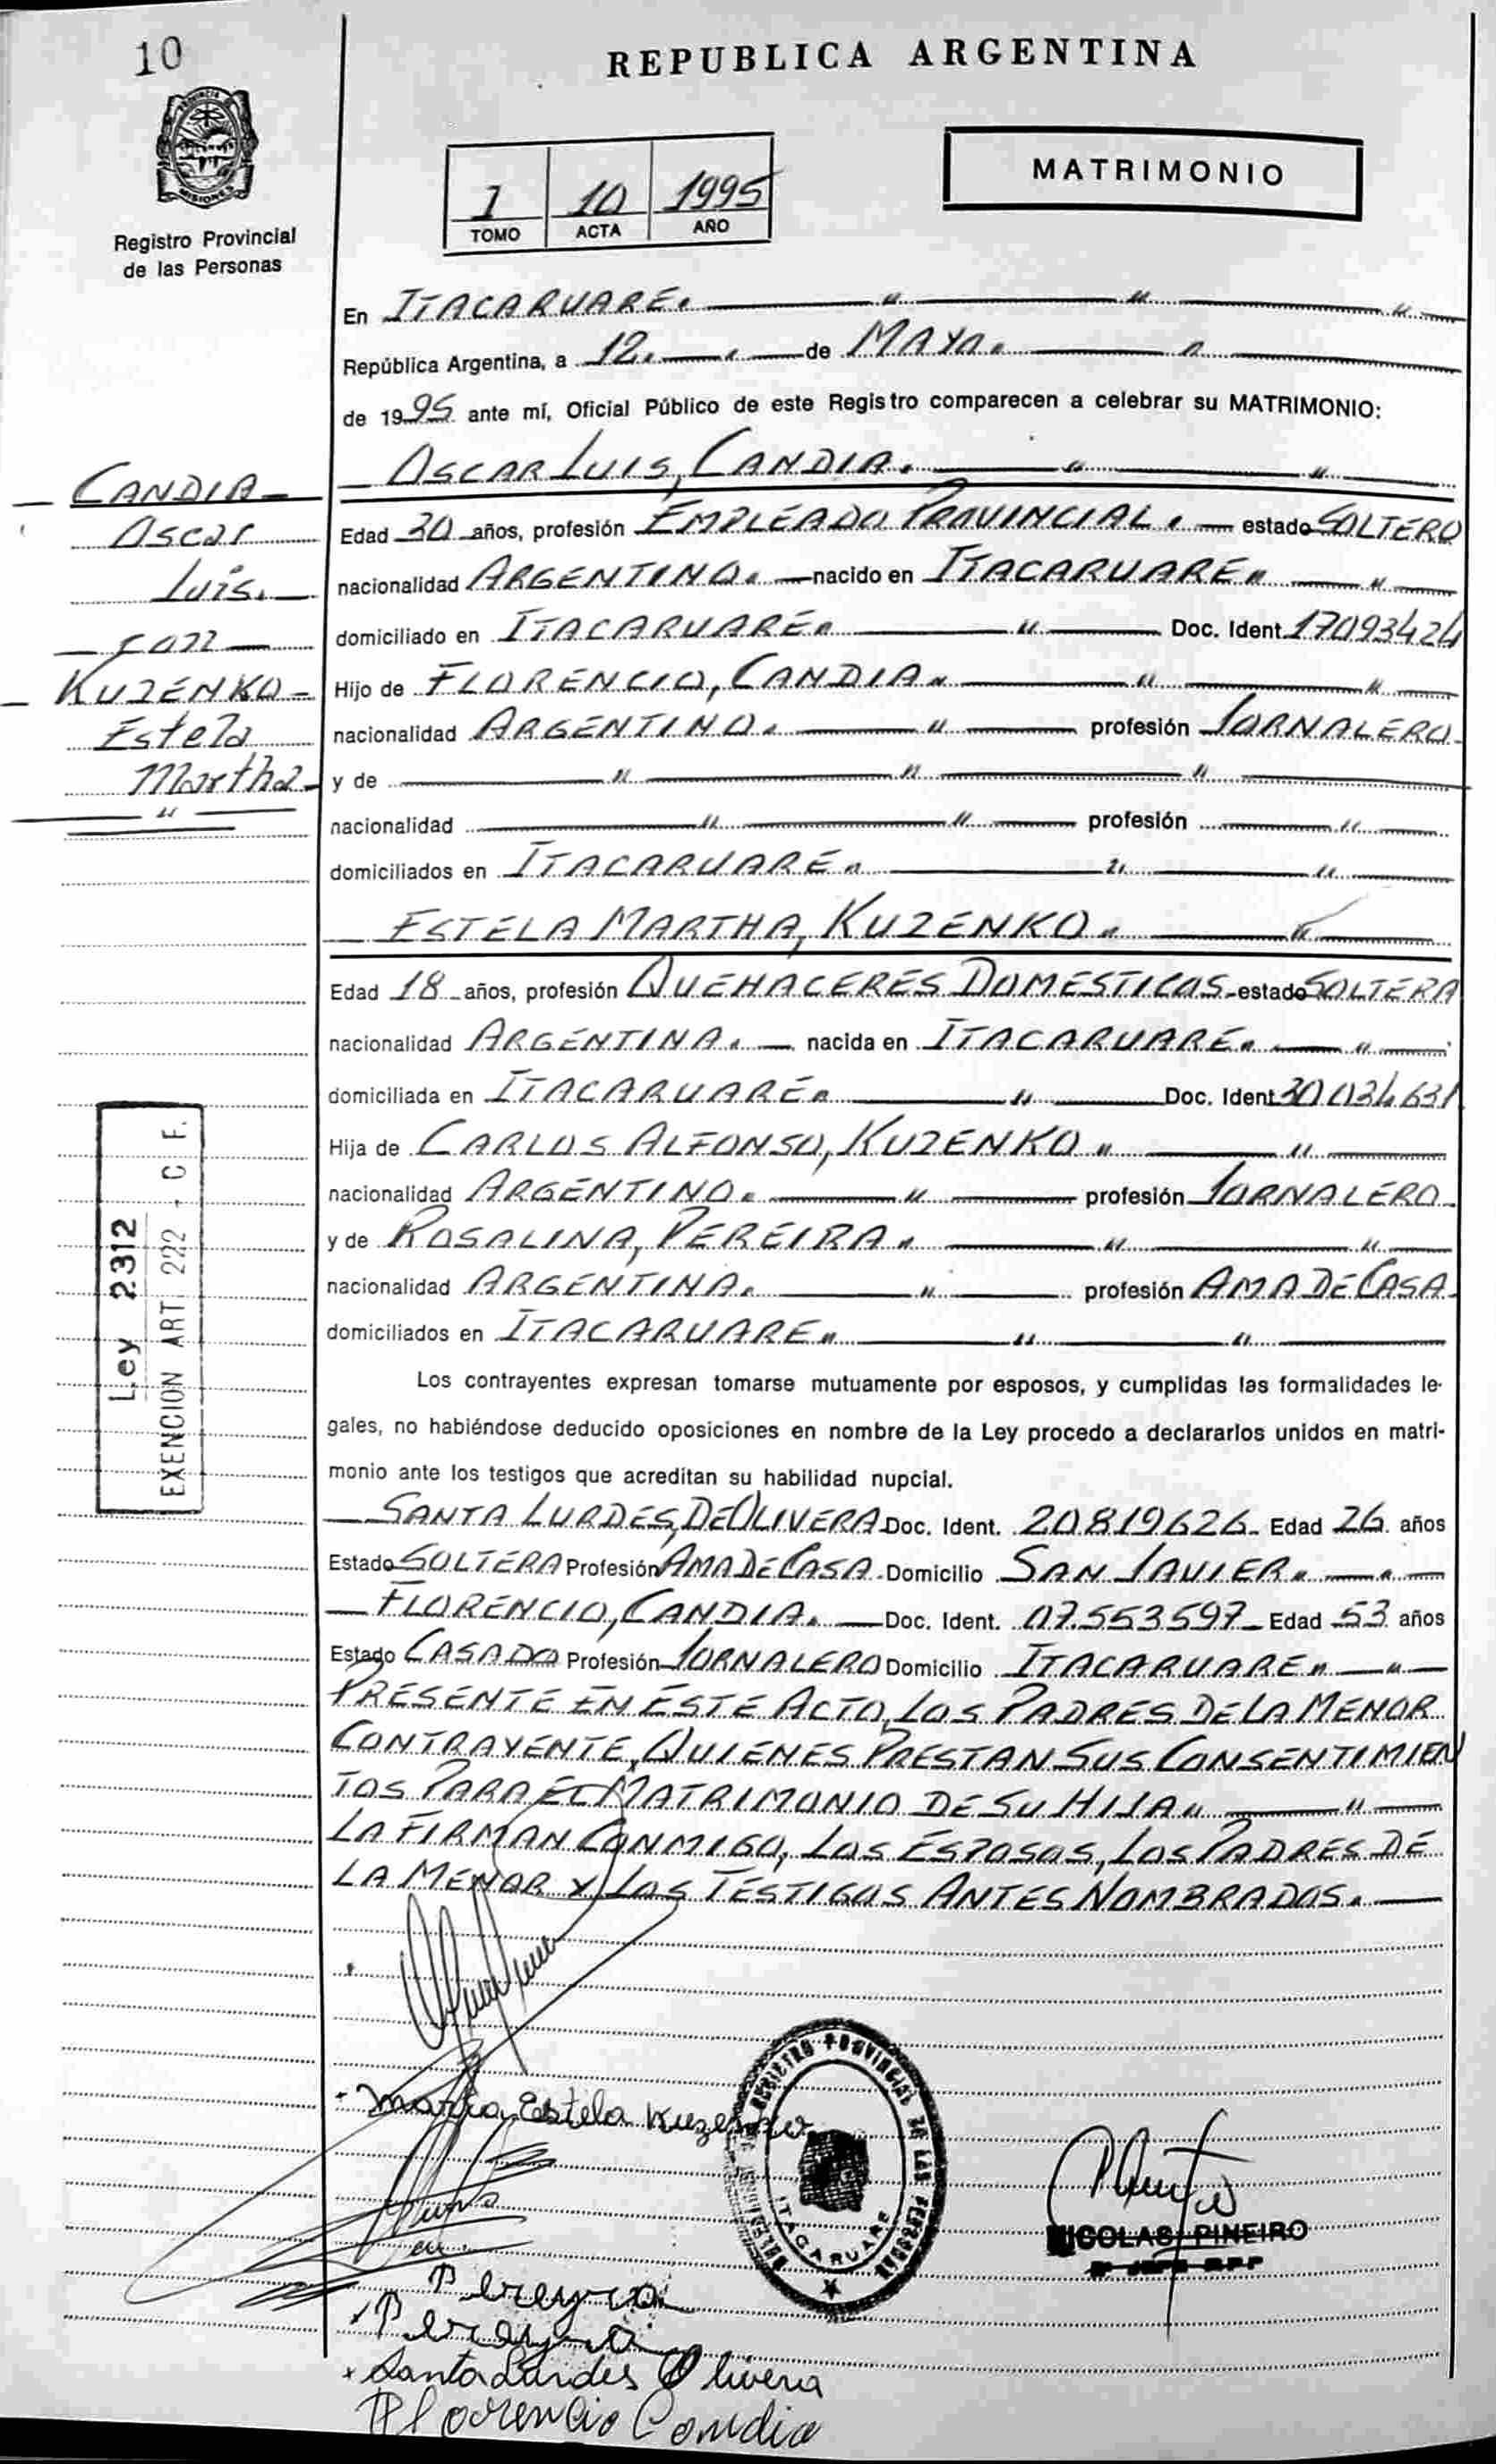 10
REPUBLICA ARGENTINA
PROVINCIA
MISIONES
Registro Provincial
de las Personas
1 10 1995
TOMO ACTA AÑO
MATRIMONIO
En ITACARUARE.
República Argentina, a 12. de MAYO.
de 1995 ante mí, Oficial Público de este Registro comparecen a celebrar su MATRIMONIO:
OSCAR LUIS, CANDIA.
CANDIA
Oscar
Luis.
con
KUZENKO
Estela
Martha
Edad 30 años, profesión EMPLEADO PROVINCIAL. estado SOLTERO
nacionalidad ARGENTINO. nacido en ITACARUARE
domiciliado en ITACARUARE Doc. Ident. 17093424
Hijo de FLORENCIO, CANDIA
nacionalidad ARGENTINO. profesión JORNALERO.
y de
nacionalidad profesión
domiciliados en ITACARUARE
ESTELA MARTHA, KUZENKO
Edad 18 años, profesión QUEHACERES DOMESTICOS estado SOLTERA
nacionalidad ARGENTINA. nacida en ITACARUARE
domiciliada en ITACARUARE Doc. Ident. 30034631
Hija de CARLOS ALFONSO, KUZENKO
nacionalidad ARGENTINO. profesión JORNALERO.
y de ROSALINA, PEREIRA
nacionalidad ARGENTINA. profesión AMA DE CASA
domiciliados en ITACARUARE
Ley 2312
EXENCION ART 222 - C F.
Los contrayentes expresan tomarse mutuamente por esposos, y cumplidas las formalidades le-
gales, no habiéndose deducido oposiciones en nombre de la Ley procedo a declararlos unidos en matri-
monio ante los testigos que acreditan su habilidad nupcial.
SANTA LURDES, DE OLIVERA Doc. Ident. 20819626 Edad 26 años
Estado SOLTERA Profesión AMA DE CASA Domicilio SAN JAVIER
FLORENCIO, CANDIA. Doc. Ident. 07.553597 Edad 53 años
Estado CASADO Profesión JORNALERO Domicilio ITACARUARE
PRESENTE EN ESTE ACTO, LOS PADRES DE LA MENOR
CONTRAYENTE, QUIENES PRESTAN SUS CONSENTIMIEN
TOS PARA EL MATRIMONIO DE SU HIJA
LA FIRMAN CONMIGO, LOS ESPOSOS, LOS PADRES DE
LA MENOR Y LOS TESTIGOS ANTES NOMBRADOS.
Estela Kuzenko
REGISTRO PROVINCIAL DE LAS PERSONAS
ITACARUARE
MISIONES
NICOLAS PINEIRO
Pereyra
Pereyra
Santa Lurdes Olivera
Florencio Candia